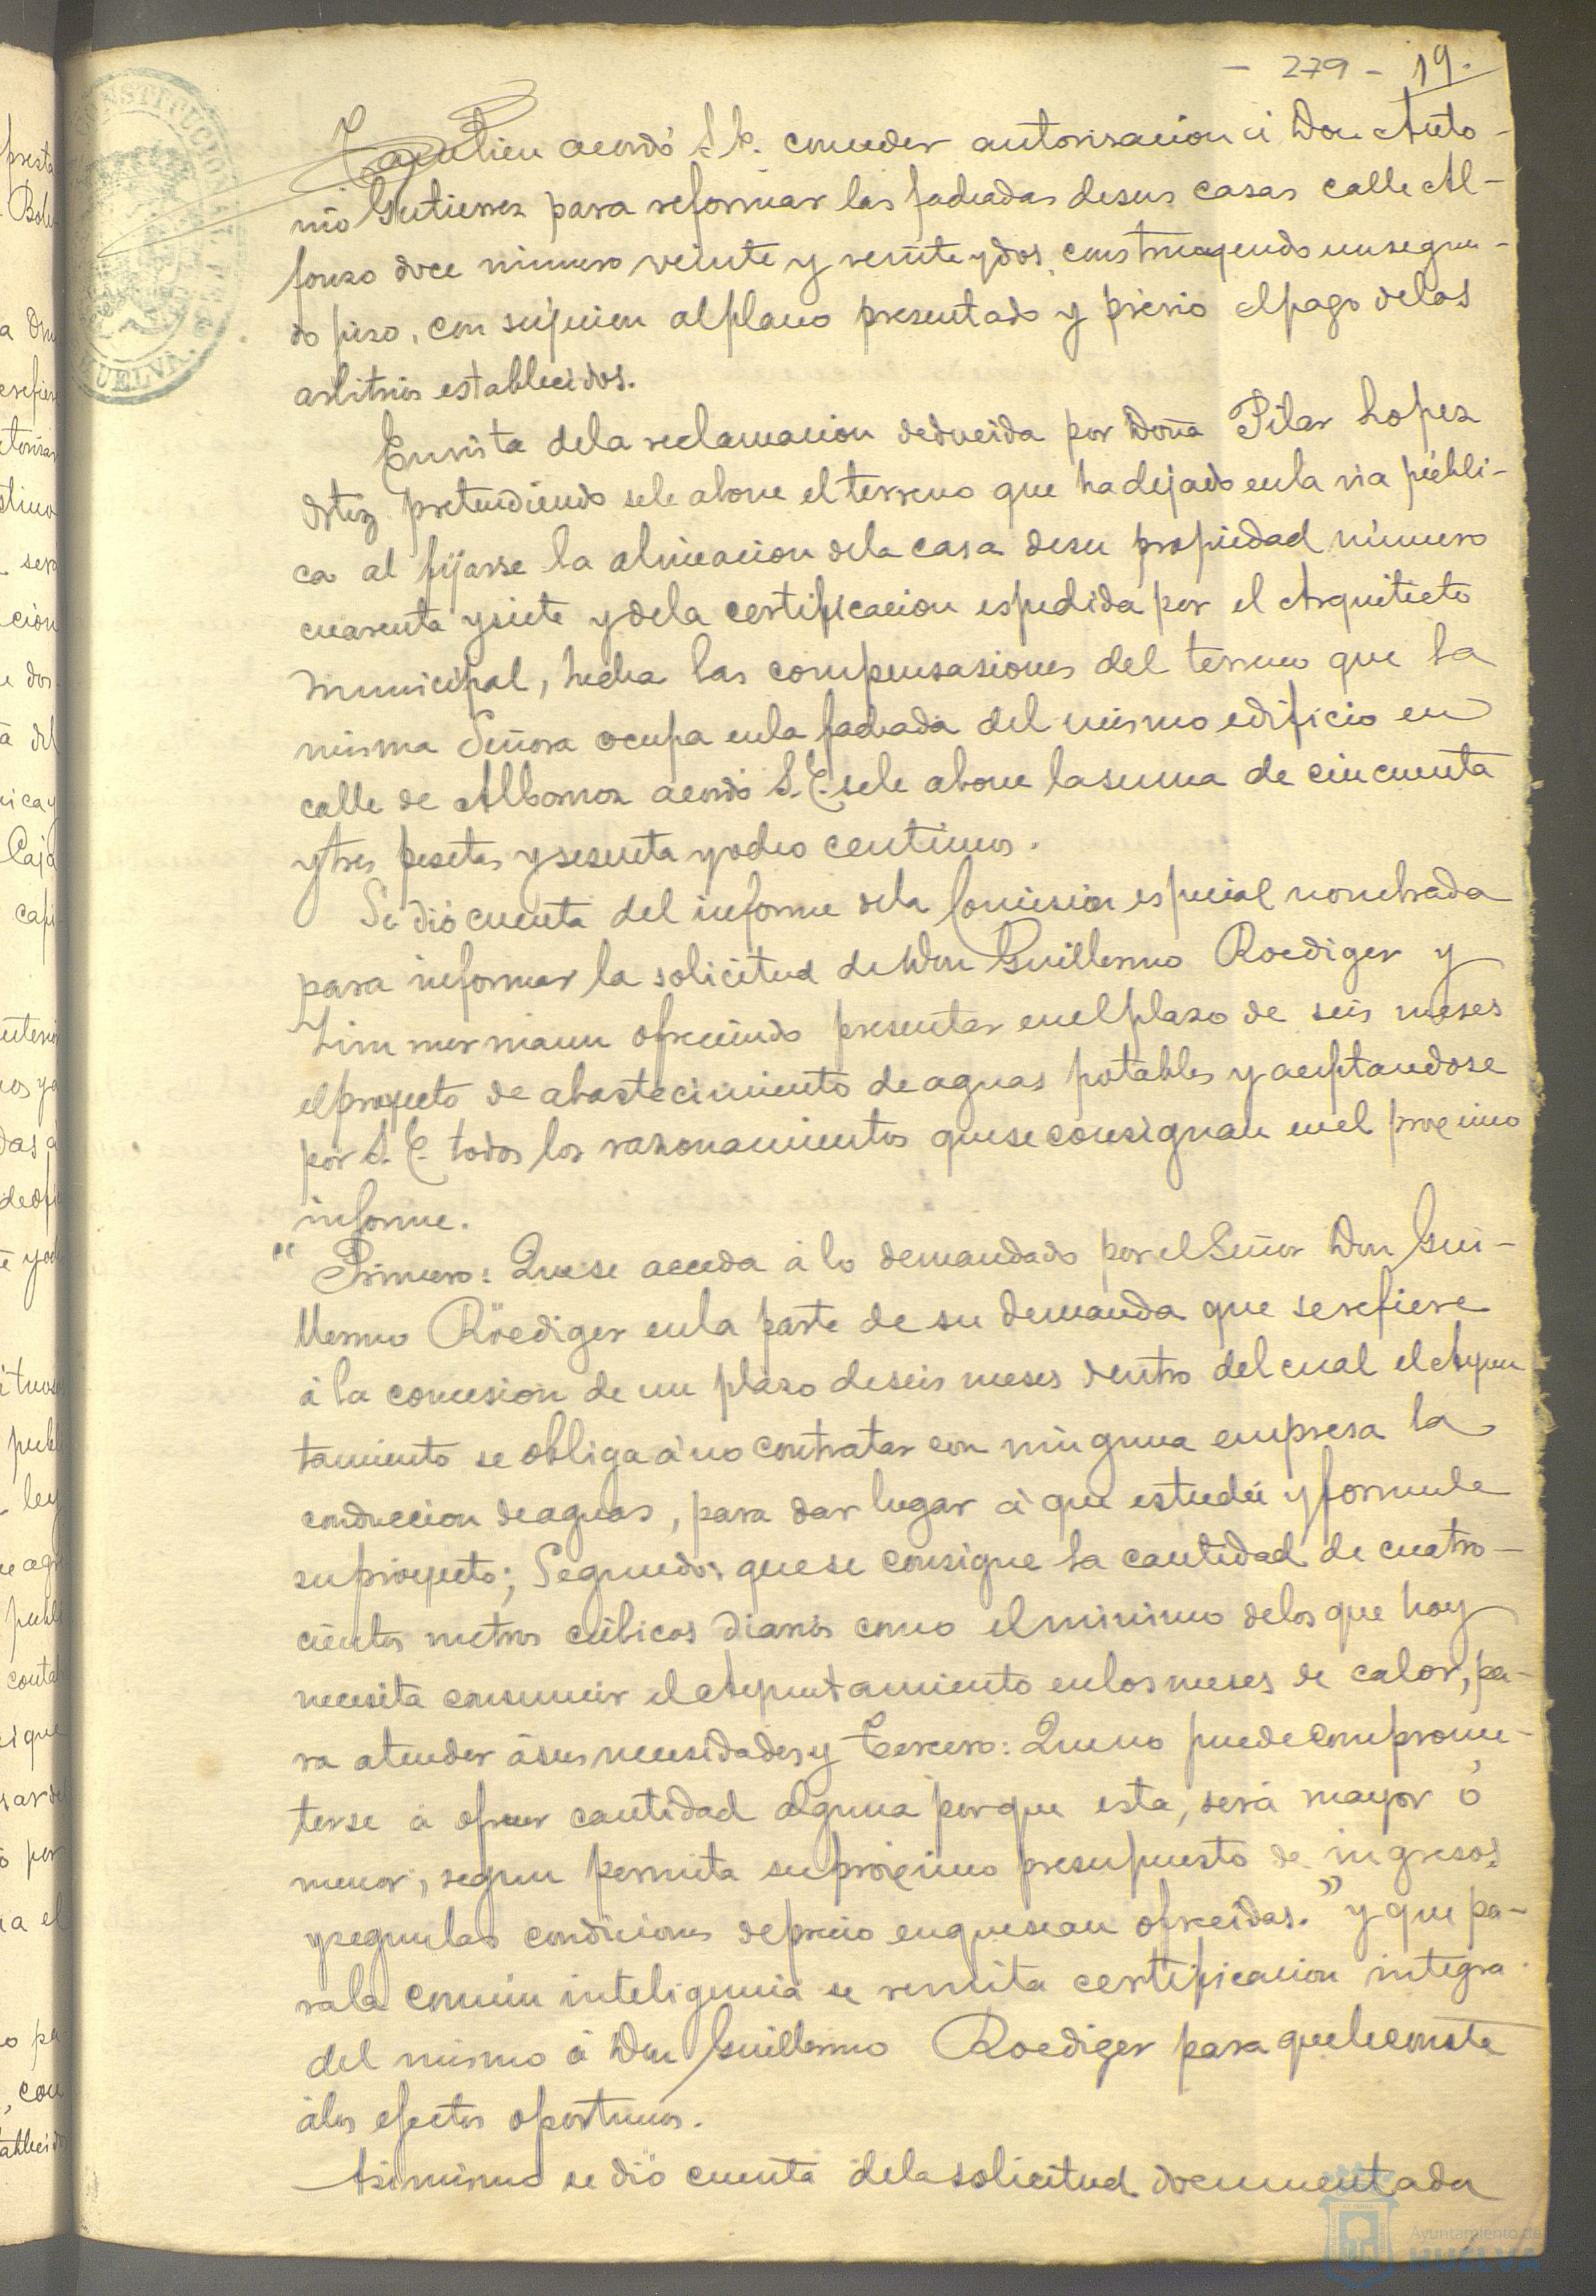 - 279 - 19.
Tambien acordó S.E. conceder autorisacion á Don Anto-
nio Gutierrez para reformar las fachadas de sus casas calle Al-
fonso doce número veinte y veinte y dos, construyendo un segun-
do piso, con sujecion al plano presentado y prévio el pago de los
arbitrios establecidos.
En vista de la reclamacion deducida por Doña Pilar Lopez
Ortiz pretendiendo se le abone el terreno que ha dejado en la via públi-
ca al fijarse la alineacion de la casa de su propiedad número
cuarenta y siete y de la certificacion espedida por el Arquitecto
municipal, hecha las compensasiones del terreno que la
misma Señora ocupa en la fachada del mismo edificio en
calle de Albornoz acordó S.E. se le abone la suma de cincuenta
y tres pesetas y sesenta y ocho centimos.
Se dió cuenta del informe de la Comision especial nombrada
para informar la solicitud de Don Guillermo Roediger y
Zimmermann ofreciendo presentar en el plazo de seis meses
el proyecto de abastecimiento de aguas potables y aceptandose
por S.E. todos los razonamientos que se consignan en el proximo
informe.
" Primero: Que se acceda á lo demandado por el Señor Don Gui-
llermo Röediger en la parte de su demanda que se refiere
á la concesion de un plazo de seis meses dentro del cual el Ayun
tamiento se obliga á no contratar con ninguna empresa la
conduccion de aguas, para dar lugar á que estudie y formule
su proyecto; Segundo: que se consigne la cantidad de cuatro-
cientos metros cúbicos diarios como el minimo de los que hoy
necesita consumir el Ayuntamiento en los meses de calor, pa-
ra atender á sus necesidades y Tercero: Que no puede comprome-
terse á ofrecer cantidad alguna porque esta, será mayor ó
menor, segun permita su próximo presupuesto de ingresos
y segun las condiciones de precio en que sean ofrecidas." y que pa-
ra la comun inteligencia se remita certificacion integra
del mismo á Don Guillermo Roediger para que le conste
á los efectos oportunos.
Asimismo se dió cuenta de la solicitud documentada
CONSTITUCIONAL
HUELVA.
Ayuntamiento de
HUELVA